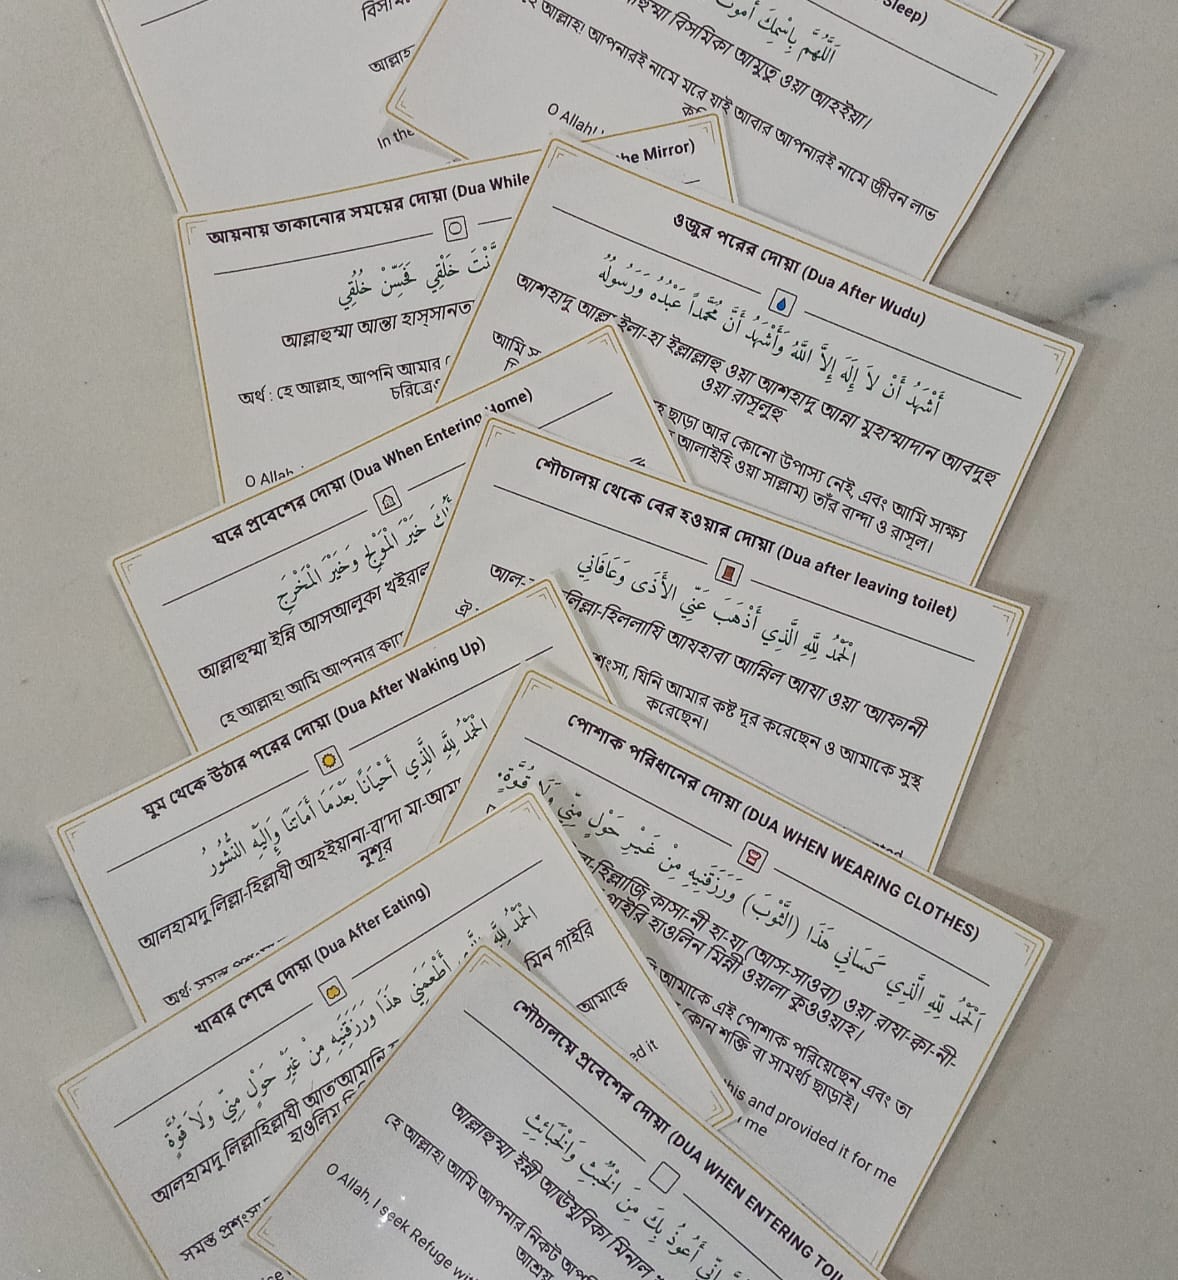 বিসমি
আল্লাহ
In the
Sleep)
اَللّٰهُمَّ بِاسْمِكَ أَمُوتُ
বিসমিকা আমুতু ওয়া আহইয়া।
আল্লাহ! আপনারই নামে মরে যাই আবার আপনারই নামে জীবন লাভ
O Allah!
আয়নায় তাকানোর সময়ের দোয়া (Dua While
the Mirror)
خَلْقِي فَحَسِّنْ خُلُقِي
আল্লাহুম্মা আন্তা হাস্সানতা
অর্থ: হে আল্লাহ, আপনি আমার
O Allah
ওজুর পরের দোয়া (Dua After Wudu)
أَشْهَدُ أَنْ لَا إِلَهَ إِلَّا اللَّهُ وَأَشْهَدُ أَنَّ مُحَمَّدًا عَبْدُهُ وَرَسُولُهُ
আশহাদু আল্লা ইলা-হা ইল্লাল্লাহু ওয়া আশহাদু আন্না মুহাম্মাদান আবদুহু
ওয়া রাসূলুহু
আমি
ছাড়া আর কোনো উপাস্য নেই এবং আমি সাক্ষ্য
আলাইহি ওয়া সাল্লাম) তাঁর বান্দা ও রাসূল।
ঘরে প্রবেশের দোয়া (Dua When Entering Home)
خَيْرَ الْمَوْلِجِ وَخَيْرَ الْمَخْرَجِ
আল্লাহুম্মা ইন্নি আসআলুকা খইরাল
হে আল্লাহ! আমি আপনার কাছে
শৌচালয় থেকে বের হওয়ার দোয়া (Dua after leaving toilet)
الْحَمْدُ لِلَّهِ الَّذِي أَذْهَبَ عَنِّي الْأَذَى وَعَافَانِي
আল-
লিল্লা-হিললাযি আযহাবা আন্নিল আযা ওয়া 'আফানী
যিনি আমার কষ্ট দূর করেছেন ও আমাকে সুস্থ
করেছেন।
ঘুম থেকে উঠার পরের দোয়া (Dua After Waking Up)
الْحَمْدُ لِلَّهِ الَّذِي أَحْيَانَا بَعْدَمَا أَمَاتَنَا وَإِلَيْهِ النُّشُورُ
আলহামদু লিল্লা-হিল্লাযী আহইয়ানা-বা'দা মা-আমা
নুশূর
অর্থ:
পোশাক পরিধানের দোয়া (DUA WHEN WEARING CLOTHES)
الْحَمْدُ لِلَّهِ الَّذِي كَسَانِي هَذَا (الثَّوْبَ) وَرَزَقَنِيهِ مِنْ غَيْرِ حَوْلٍ مِّنِّي وَلَا قُوَّةٍ.
হিল্লাজি কাসা-নী হা-যা (আস-সাওবা) ওয়া রাযা-ক্বা-নী-
গাইরি হাওলিন মিন্নী ওয়ালা কুওওয়াহ।
আমাকে এই পোশাক পরিয়েছেন এবং তা
কোন শক্তি বা সামর্থ্য ছাড়াই।
this and provided it for me
me
খাবার শেষে দোয়া (Dua After Eating)
الْحَمْدُ لِلَّهِ أَطْعَمَنِي هَذَا وَرَزَقَنِيهِ مِنْ غَيْرِ حَوْلٍ مِنِّي وَلَا قُوَّةٍ
আলহামদু লিল্লাহিল্লাযী আত'আমানি
মিন গাইরি
হাওলিম
সমস্ত প্রশংসা
আমাকে
শৌচালয়ে প্রবেশের দোয়া (DUA WHEN ENTERING TOI
إِنِّي أَعُوذُ بِكَ مِنَ الْخُبُثِ وَالْخَبَائِثِ
আল্লাহুম্মা ইন্নী আউযুবিকা মিনাল
হে আল্লাহ! আমি আপনার নিকট
আশ্রয়
O Allah, I seek Refuge with